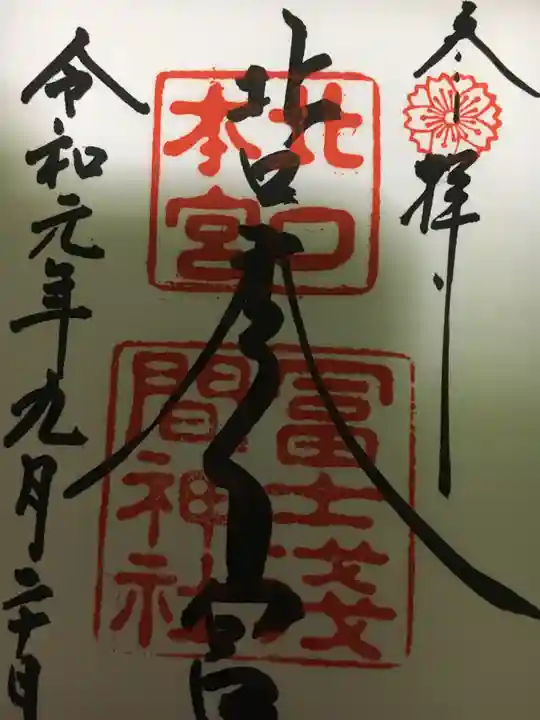 奉拝
北口本宮
北口本宮
冨士浅間神社
令和元年九月二十日